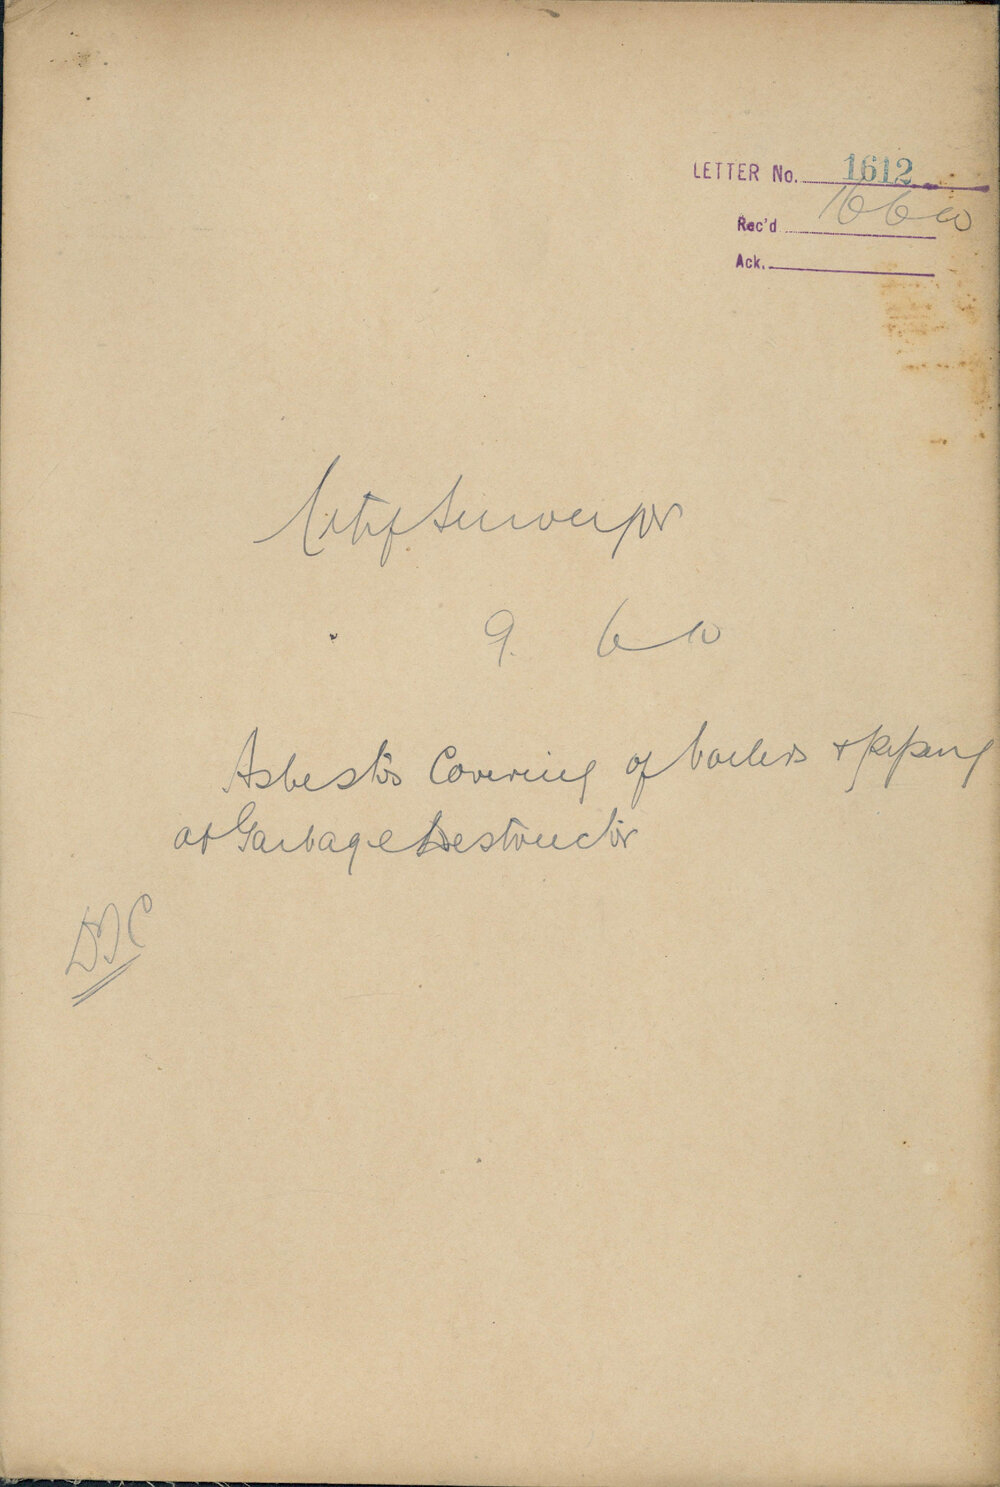 LETTER No. 1612
Rec'd 16 6 10
Ack.
City Surveyor
9. 6 10
Asbestos Covering of boilers + piping
at Garbage Destructor